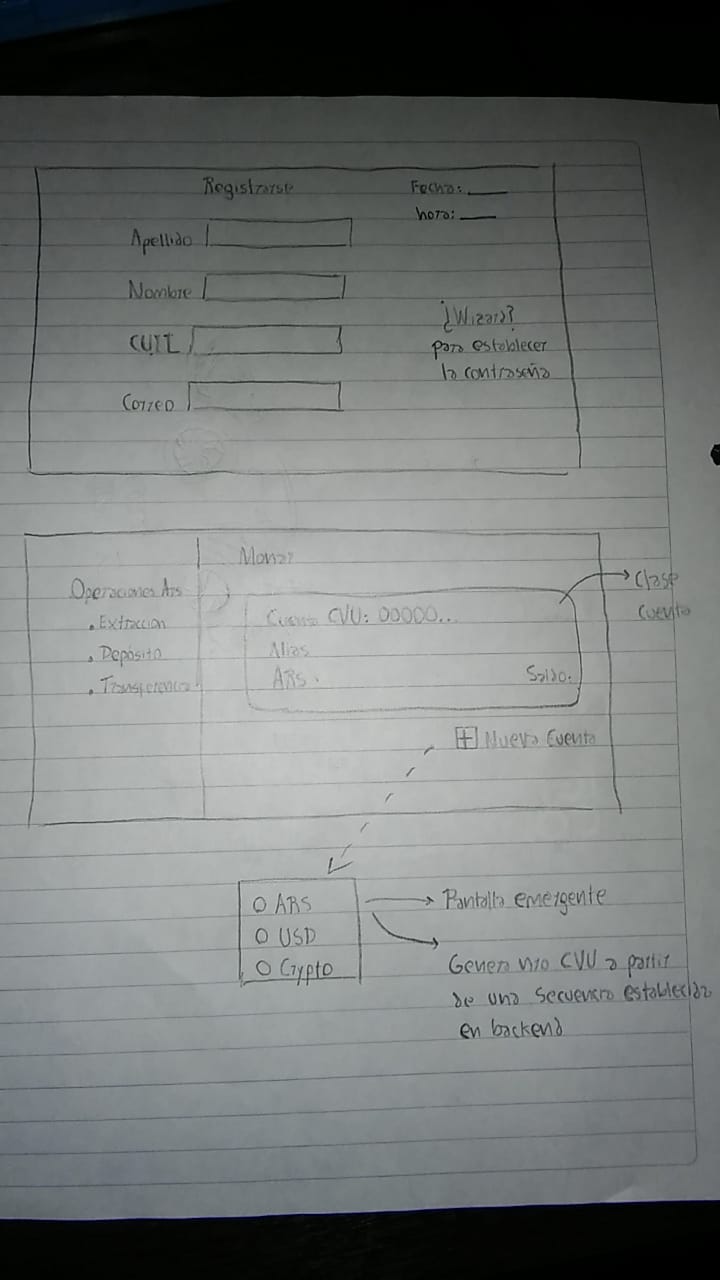 Registrarse
Fecha: ___
hora: ___
Apellido
Nombre
CUIL
Correo
¿Wizard?
para establecer
la contraseña
Operaciones Ars
. Extraccion
. Depósito
. Transferencia
Cuenta CVU: 00000..
Alias
ARS.
Saldo.
Clase
Cuenta
+ Nueva Cuenta
O ARS
O USD
O Crypto
Pantalla emergente
CVU a partir
de una secuencia establecida
en backend